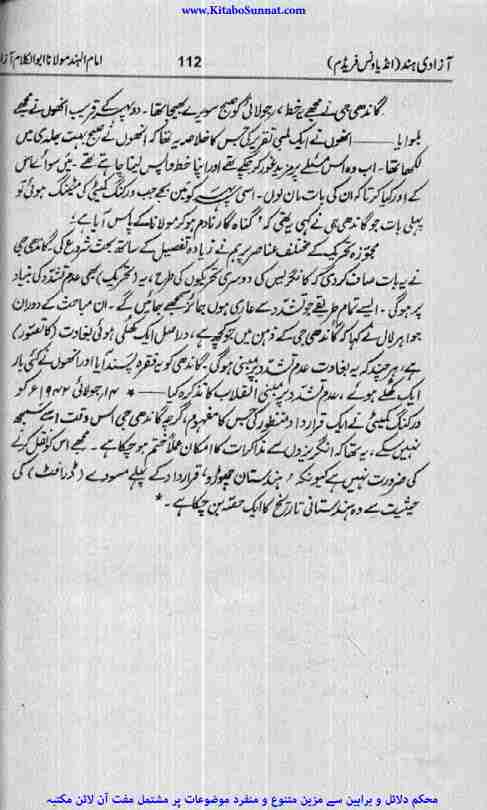 www.KitaboSunnat.com
آزادی ہند (انڈیا ونس فریڈم) 112 امام الہند مولانا ابوالکلام آزاد
گاندھی جی نے مجھے یہ خط ۷ جولائی کو صبح سویرے بھیجا تھا۔ دوپہر کے قریب انھوں نے مجھے
بلوایا ــــــ انھوں نے ایک لمبی تقریر کی جس کا خلاصہ یہ تھا کہ انھوں نے صبح بہت جلدی میں
لکھا تھا۔ اب وہ اس مسئلے پر مزید غور کر چکے تھے اور اپنا خط واپس لینا چاہتے تھے۔ میں سوائے اس
کے اور کیا کرتا کہ ان کی بات مان لوں۔ اسی سہ پہر کو تین بجے جب ورکنگ کمیٹی کی میٹنگ ہوئی تو
پہلی بات جو گاندھی جی نے کہی یہ تھی کہ "گناہ گار نادم ہو کر مولانا کے پاس آیا ہے!
مجوزہ تحریک کے مختلف عناصر پر ہم نے زیادہ تفصیل کے ساتھ بحث شروع کی۔ گاندھی جی
نے یہ بات صاف کر دی کہ کانگریس کی دوسری تحریکوں کی طرح، یہ (تحریک) بھی عدم تشدد کی بنیاد
پر ہوگی۔ ایسے تمام طریقے جو تشدد سے عاری ہوں جائز سمجھے جائیں گے۔ ان مباحث کے دوران
جواہر لال نے کہا کہ گاندھی جی کے ذہن میں جو کچھ ہے، دراصل ایک کھلی ہوئی بغاوت (کا تصور)
ہے، ہر چند کہ یہ بغاوت عدم تشدد پر مبنی ہوگی۔ گاندھی کو یہ فقرہ پسند آیا اور انھوں نے کئی بار
ایک کھلے ہوئے، عدم تشدد پر مبنی انقلاب کا تذکرہ کیا ــــ * ۱۴ جولائی ۱۹۴۲ء کو
ورکنگ کمیٹی نے ایک قرارداد منظور کی جس کا مفہوم، گرچہ گاندھی جی اس وقت اسے سمجھ
نہیں سکے، یہ تھا کہ انگریزوں سے مذاکرات کا امکان عملاً ختم ہو چکا ہے۔ مجھے اس کو نقل کرنے
کی ضرورت نہیں ہے کیونکہ 'ہندستان چھوڑو' قرارداد کے پہلے مسودے (ڈرافٹ) کی
حیثیت سے وہ ہندستانی تاریخ کا ایک حصہ بن چکا ہے۔ *
محکم دلائل و براہین سے مزین متنوع و منفرد موضوعات پر مشتمل مفت آن لائن مکتبہ